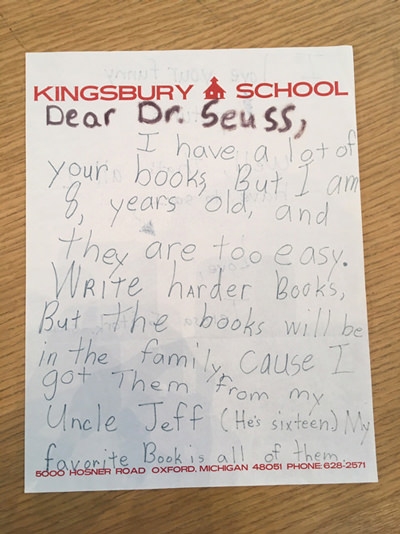 KINGSBURY SCHOOL
Dear Dr. Seuss,
I have a lot of
your books, But I am
8, years old, and
they are too easy.
WRite haRder Books,
But the books will be
in the family, cause I
got Them from my
Uncle Jeff (He's sixteen.) My
favorite Book is all of them.
5000 HOSNER ROAD OXFORD, MICHIGAN 48051 PHONE: 628-2571